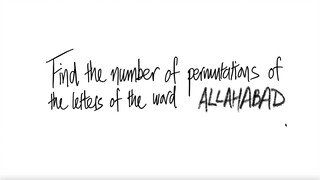 Find the number of permutations of
the letters of the word ALLAHABAD.